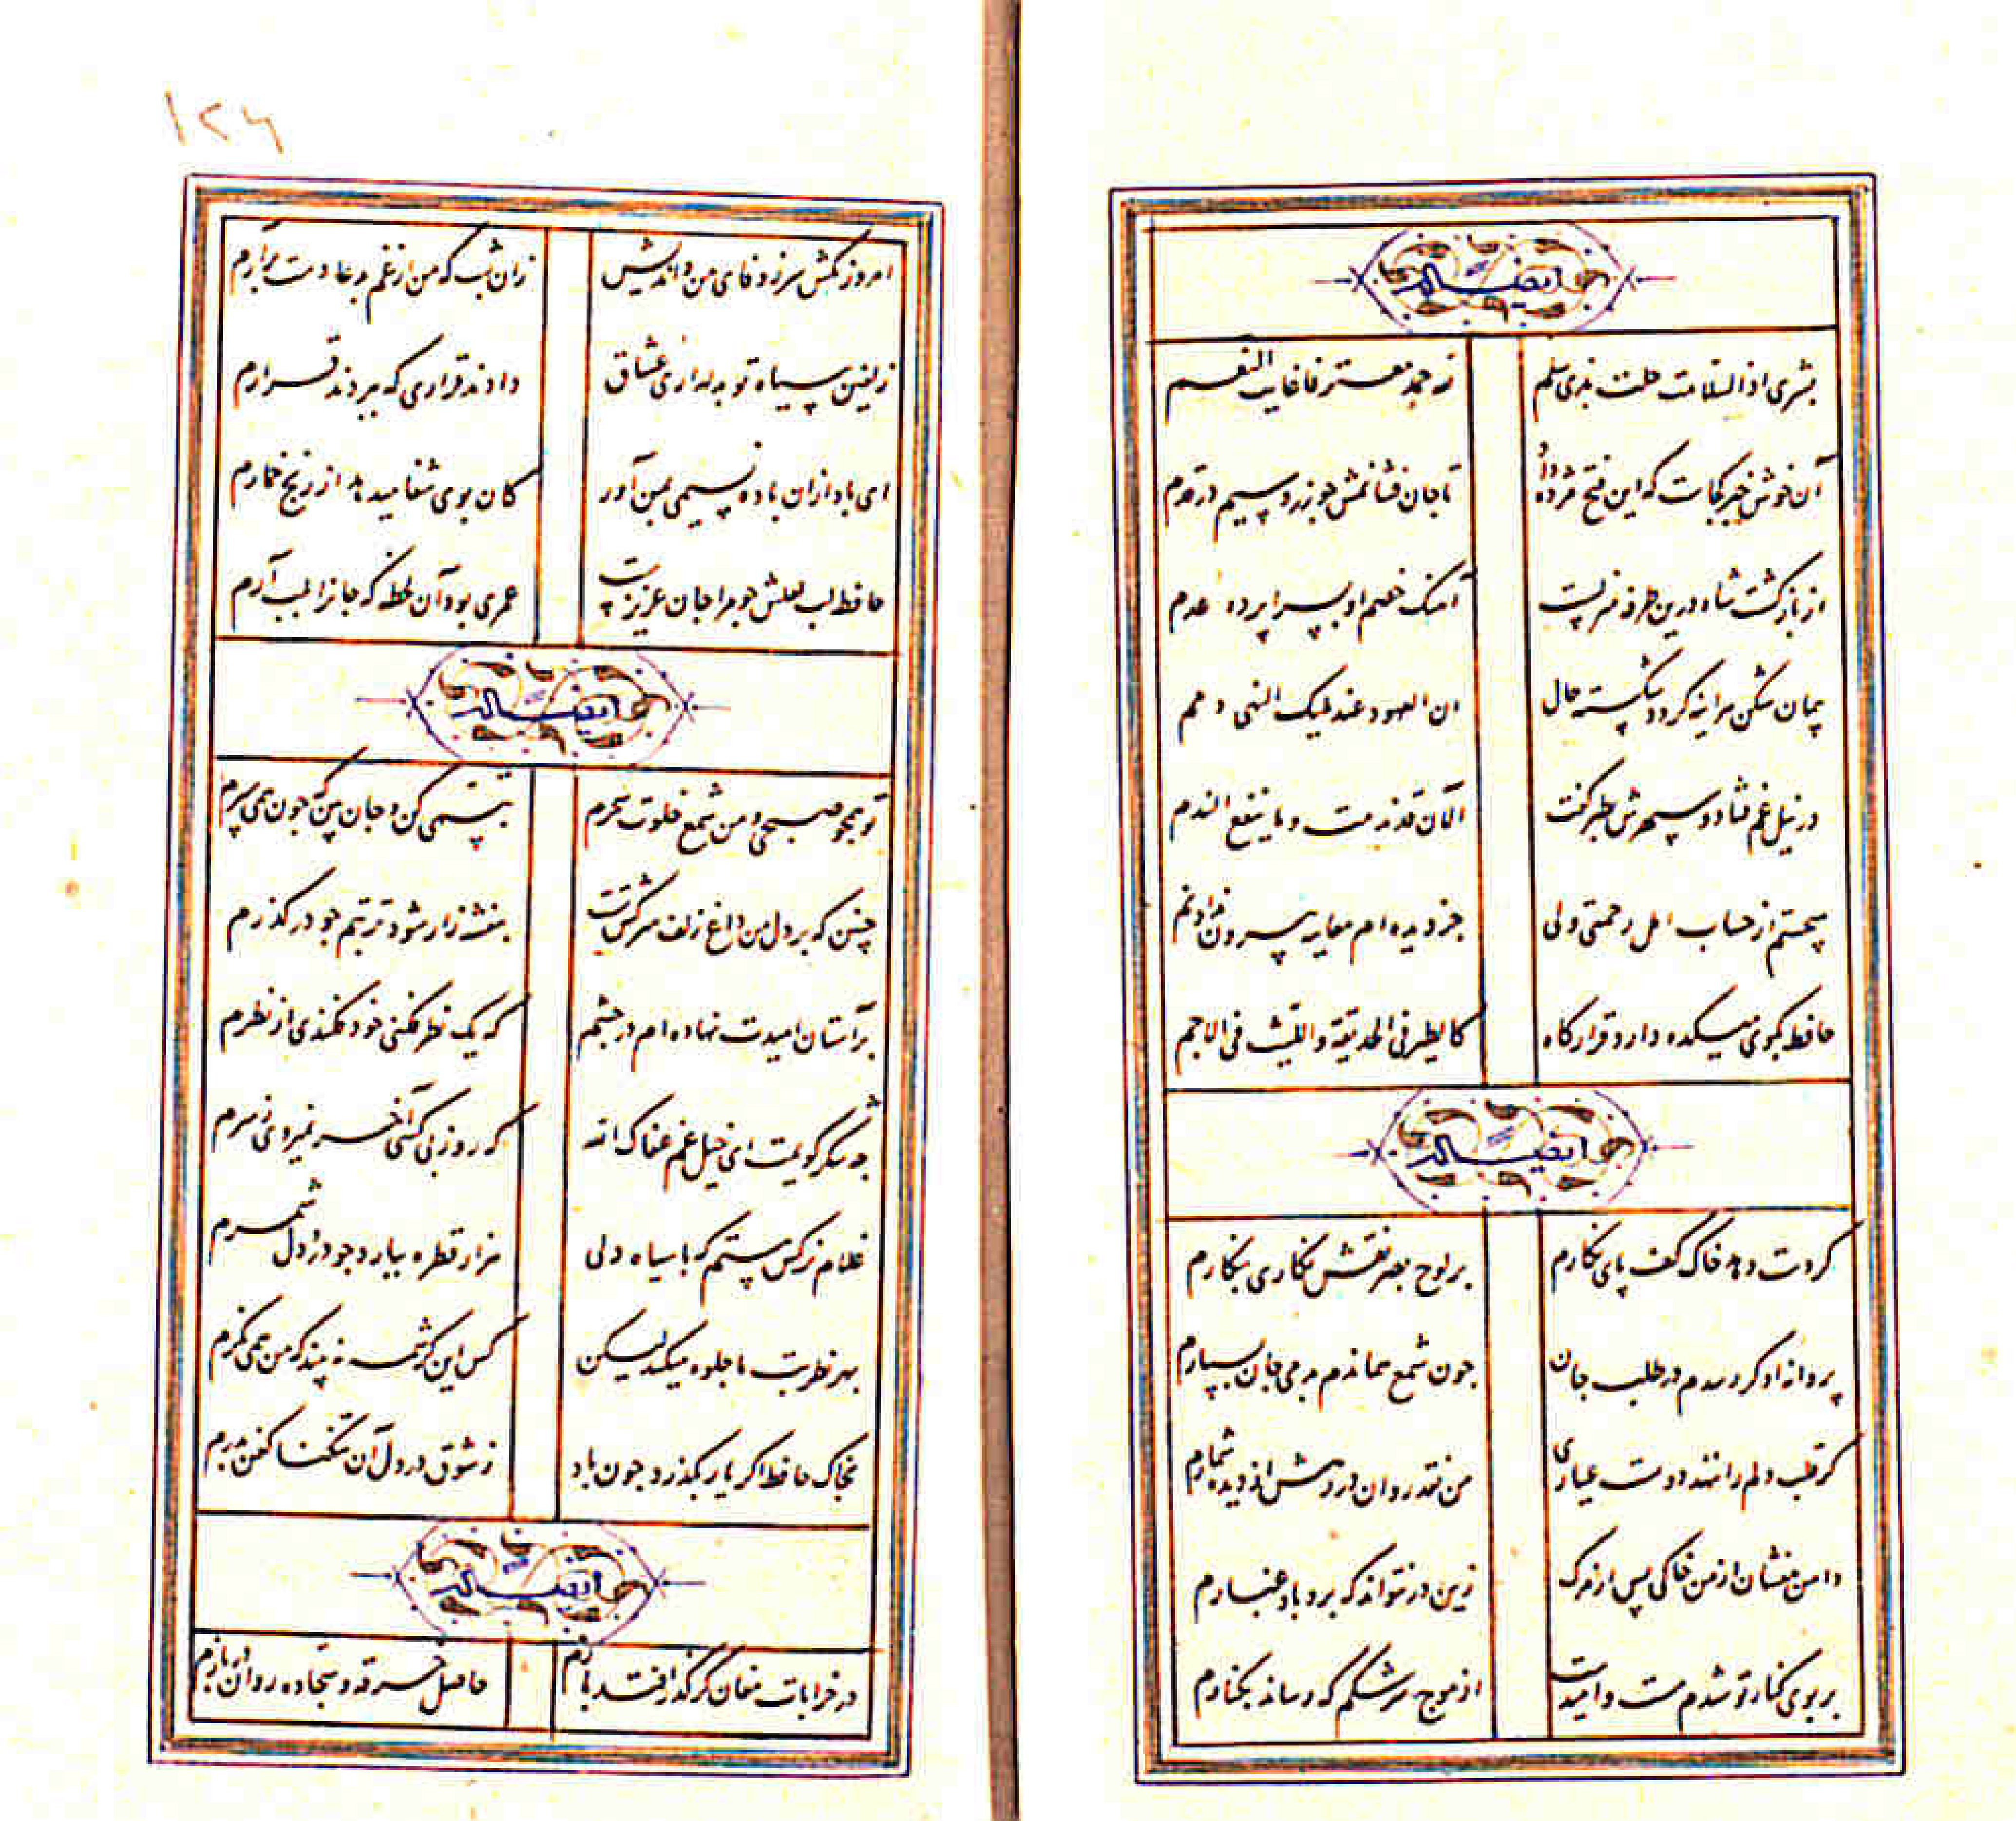 ایضاله
بشری اذ السلامت حلت بذی سلم
لله حمد معترف غایت النعم
آن خوش خبر کجاست که این فتح مژده داد
تا جان فشانمش جو زر و سیم در قدم
از بازکشت شاه درین طرفه منزلست
آهنک خصم او بسرا پرده عدم
پیمان شکن هراینه کردد شکسته حال
ان العهود عند ملیک النهی ذمم
در نیل غم فتاد و سپهرش بطنز کفت
الآن قد ندمت و ما ینفع الندم
میجستم از سحاب امل رحمتی ولی
جز دیده ام معاینه بیرون نداد نم
حافظ بکوی میکده دارد قرارکاه
کالطیر فی الحدیقة و اللیث فی الاجم
ایضاله
کر دست دهد خاک کف پای نکارم
بر لوح بصر نقش نکاری بنکارم
پروانه او کر رسدم در طلب جان
جون شمع هماندم بدمی جان بسپارم
کر قلب دلم را ننهد دوست عیاری
من نقد روان در رهش از دیده شمارم
دامن مفشان از من خاکی پس از مرک
زین در نتواند که برد باد غبارم
بر بوی کنار تو شدم مست و امیدست
از موج سرشکم که رساند بکنارم
۱۲۶
امروز مکش سر ز وفای من و اندیش
زان شب که من از غم بدعا دست برآرم
زلفین سیاه تو بدلداری عشاق
دادند قراری که ببردند قرارم
ای باد ازان باده نسیمی بمن آور
کان بوی شفا میدهد از رنج خمارم
حافظ لب لعلش جو مرا جان عزیزست
عمری بود آن لحظه که جانرا بلب آرم
ایضاله
تو همچو صبحی و من شمع خلوت سحرم
تبسمی کن و جان بین که جون همی سپرم
چنین که بر دل من داغ زلف سرکش تست
بنفشه زار شود تربتم جو در کذرم
بر آستان امیدت نهاده ام در چشم
که یک نظر فکنی خود فکندی از نظرم
چه شکر کویمت ای خیل غم عفاک الله
که روز بی کسی آخر نمیروی ز سرم
غلام نرکس مستم که با سیاه دلی
هزار قطره ببارد جو درد دل شمرم
بهر نظر بت ما جلوه میکند لیکن
کس این کرشمه نه بیند که من همی نکرم
بخاک حافظ اکر یار بکذرد جون باد
ز شوق در دل آن تنکنا کفن بدرم
ایضاله
در خرابات مغان کر کذر افتد بازم
حاصل خرقه و سجاده روان دربازم